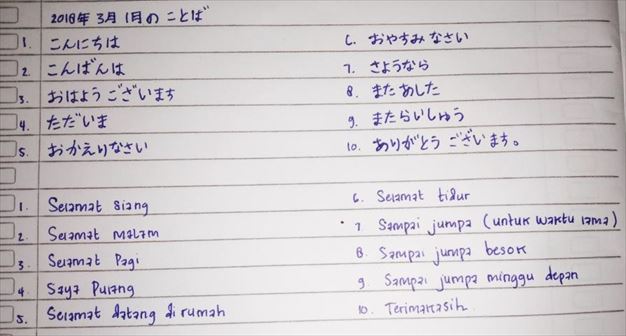 2018年 3月 1月の ことば
1. こんにちは
2. こんばんは
3. おはよう ございます
4. ただいま
5. おかえりなさい
6. おやすみ なさい
7. さようなら
8. また あした
9. またらいしゅう
10. ありがとう ございます。
1. Selamat siang
2. Selamat malam
3. Selamat Pagi
4 Saya Pulang
5. Selamat datang di rumah
6. Selamat tidur
7 Sampai jumpa (untuk waktu lama)
8. Sampai jumpa besok
9 Sampai jumpa minggu depan
10. Terimakasih.